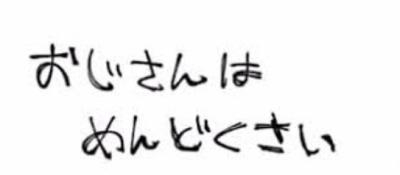 おじさんは
めんどくさい